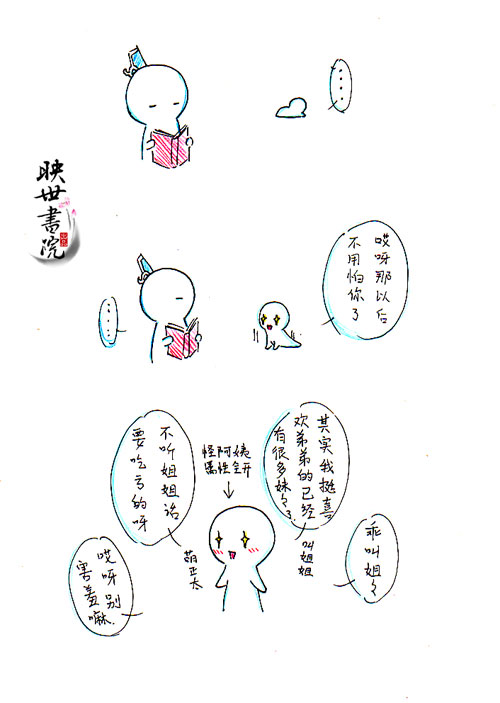 ....
映世書院
哎呀那以后
不用怕你了
....
其实我挺喜
欢弟弟的已经
有很多妹々了.
怪阿姨
属性全开
不听姐姐话
要吃亏的呀
乖叫姐々
叫姐姐
萌正太
哎呀别
害羞嘛.